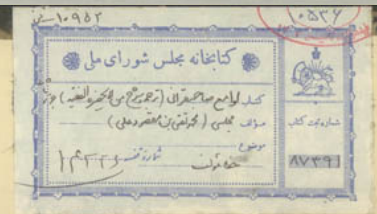 ۱۰۹۵۲
۱۰۵۳۶
کتابخانه مجلس شورای ملی
کتاب لوامع صاحبقرانی (ترجمه و شرح من لایحضره الفقیه)
مؤلف مجلسی (محمد تقی بن مقصود علی)
موضوع
شماره ثبت کتاب
۸۷۳۹۱